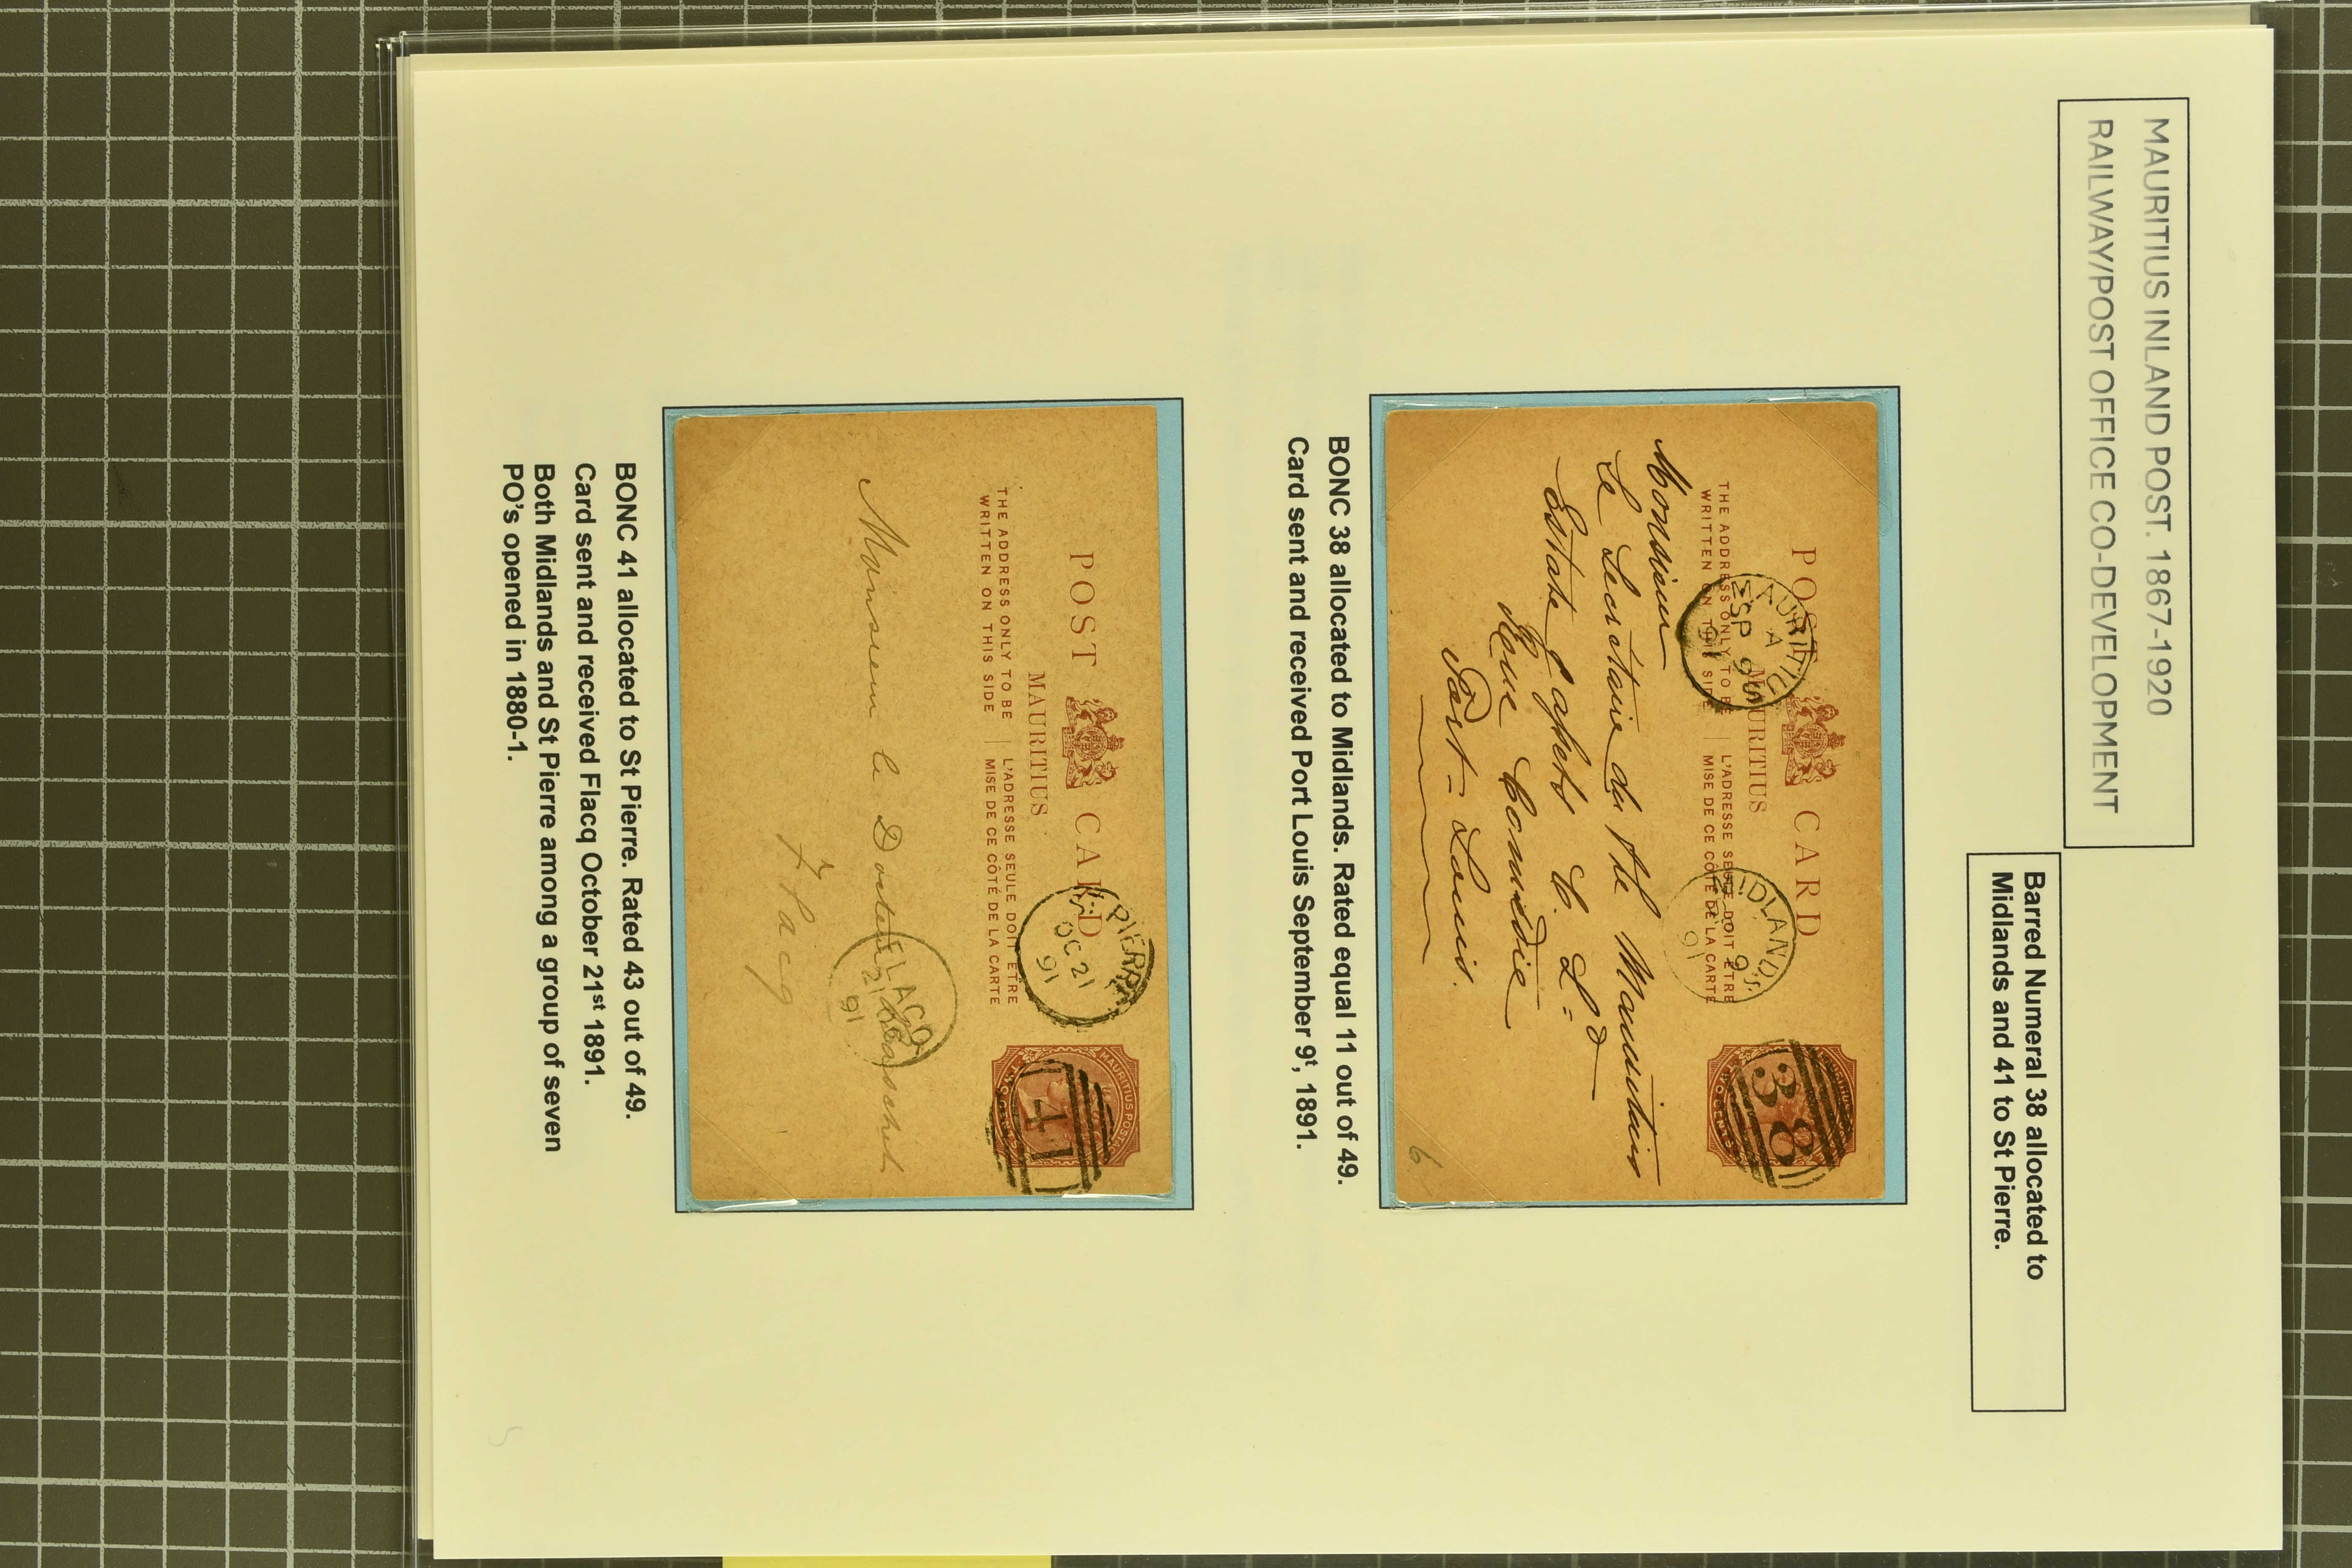 MAURITIUS INLAND POST. 1867-1920
RAILWAY/POST OFFICE CO-DEVELOPMENT
Barred Numeral 38 allocated to
Midlands and 41 to St Pierre.
POST CARD
MAURITIUS
THE ADDRESS ONLY TO BE
WRITTEN ON THIS SIDE
L'ADRESSE SEULE DOIT ÊTRE
MISE DE CE CÔTÉ DE LA CARTE
MAURITIUS
A
SP 9
91
MIDLANDS
91
38
Monsieur
Le Secretaire de the Mauritius
Estate & Assets C. Ld
Rue Comédie
Port-Louis.
6
BONC 38 allocated to Midlands. Rated equal 11 out of 49.
Card sent and received Port Louis September 9t, 1891.
POST CARD
MAURITIUS
THE ADDRESS ONLY TO BE
WRITTEN ON THIS SIDE
L'ADRESSE SEULE DOIT ÊTRE
MISE DE CE CÔTÉ DE LA CARTE
PIERRE
OC 21
91
MAURITIUS POSTAGE
TWO CENTS
41
Monsieur le Docteur
FLACQ
21
91
Flacq
BONC 41 allocated to St Pierre. Rated 43 out of 49.
Card sent and received Flacq October 21st 1891.
Both Midlands and St Pierre among a group of seven
PO's opened in 1880-1.
5